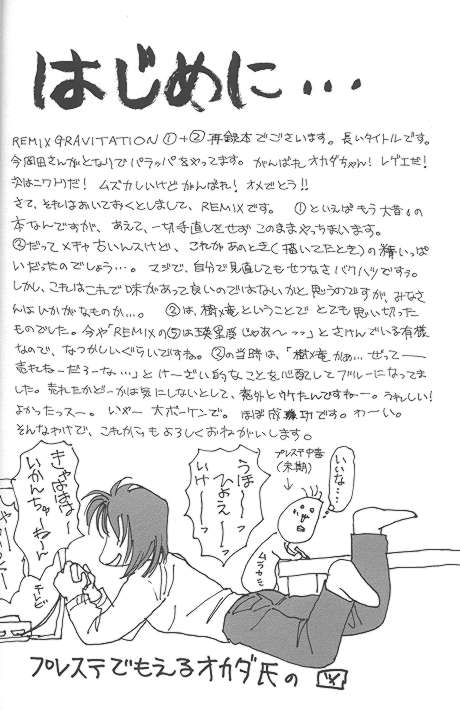 はじめに...
REMIX GRAVITATION ①+② 再録本でございます。長いタイトルです。
今岡田さんがとなりでパラッパをやってます。がんばれオカダちゃん! レゲエだ!
次はニワトリだ! ムズカしいけどがんばれ! オメでとう!!
さて、それはおいておくとしまして、REMIXです。①といえばもう大昔の
本なんですが、あえて、一切手直しをせず このままやっちまいます。
②だって メチャ古いんスけど、これがあのとき(描いてたとき)の精いっぱ
いだったのでしょう…。マジで、自分で見直しても せつなさバクハツですっ。
しかし、これはこれで味があって良いのではないかと思うのですが、みなさ
んはいかがなものか…。②は、樹×竜ということで とても思い切った
ものでした。今や「REMIXの⑤は瑛里受じゃあ〜っっ」とさけんでいる有様
なので、なつかしいぐらいですね。②の当時は、「樹×竜かぁ…ぜって——
売れねーだろーな…」と けーざい的なことを心配してブルーになってま
した。売れたかどーかは気にしないとして、意外とウケたんですねー。うれしい!
よかったっスー。いやー 大ボーケンで。ほぼ成功です。わーい。
そんなわけで、これからも よろしくおねがいします。
きゃほほほ
いかんちゃーねん
テレビ
うほ〜っ
ひょえ〜っ
いけ〜っ
プレステ中毒
(末期)
いいな…
ムラカミ
プレステでもえるオカダ氏の図